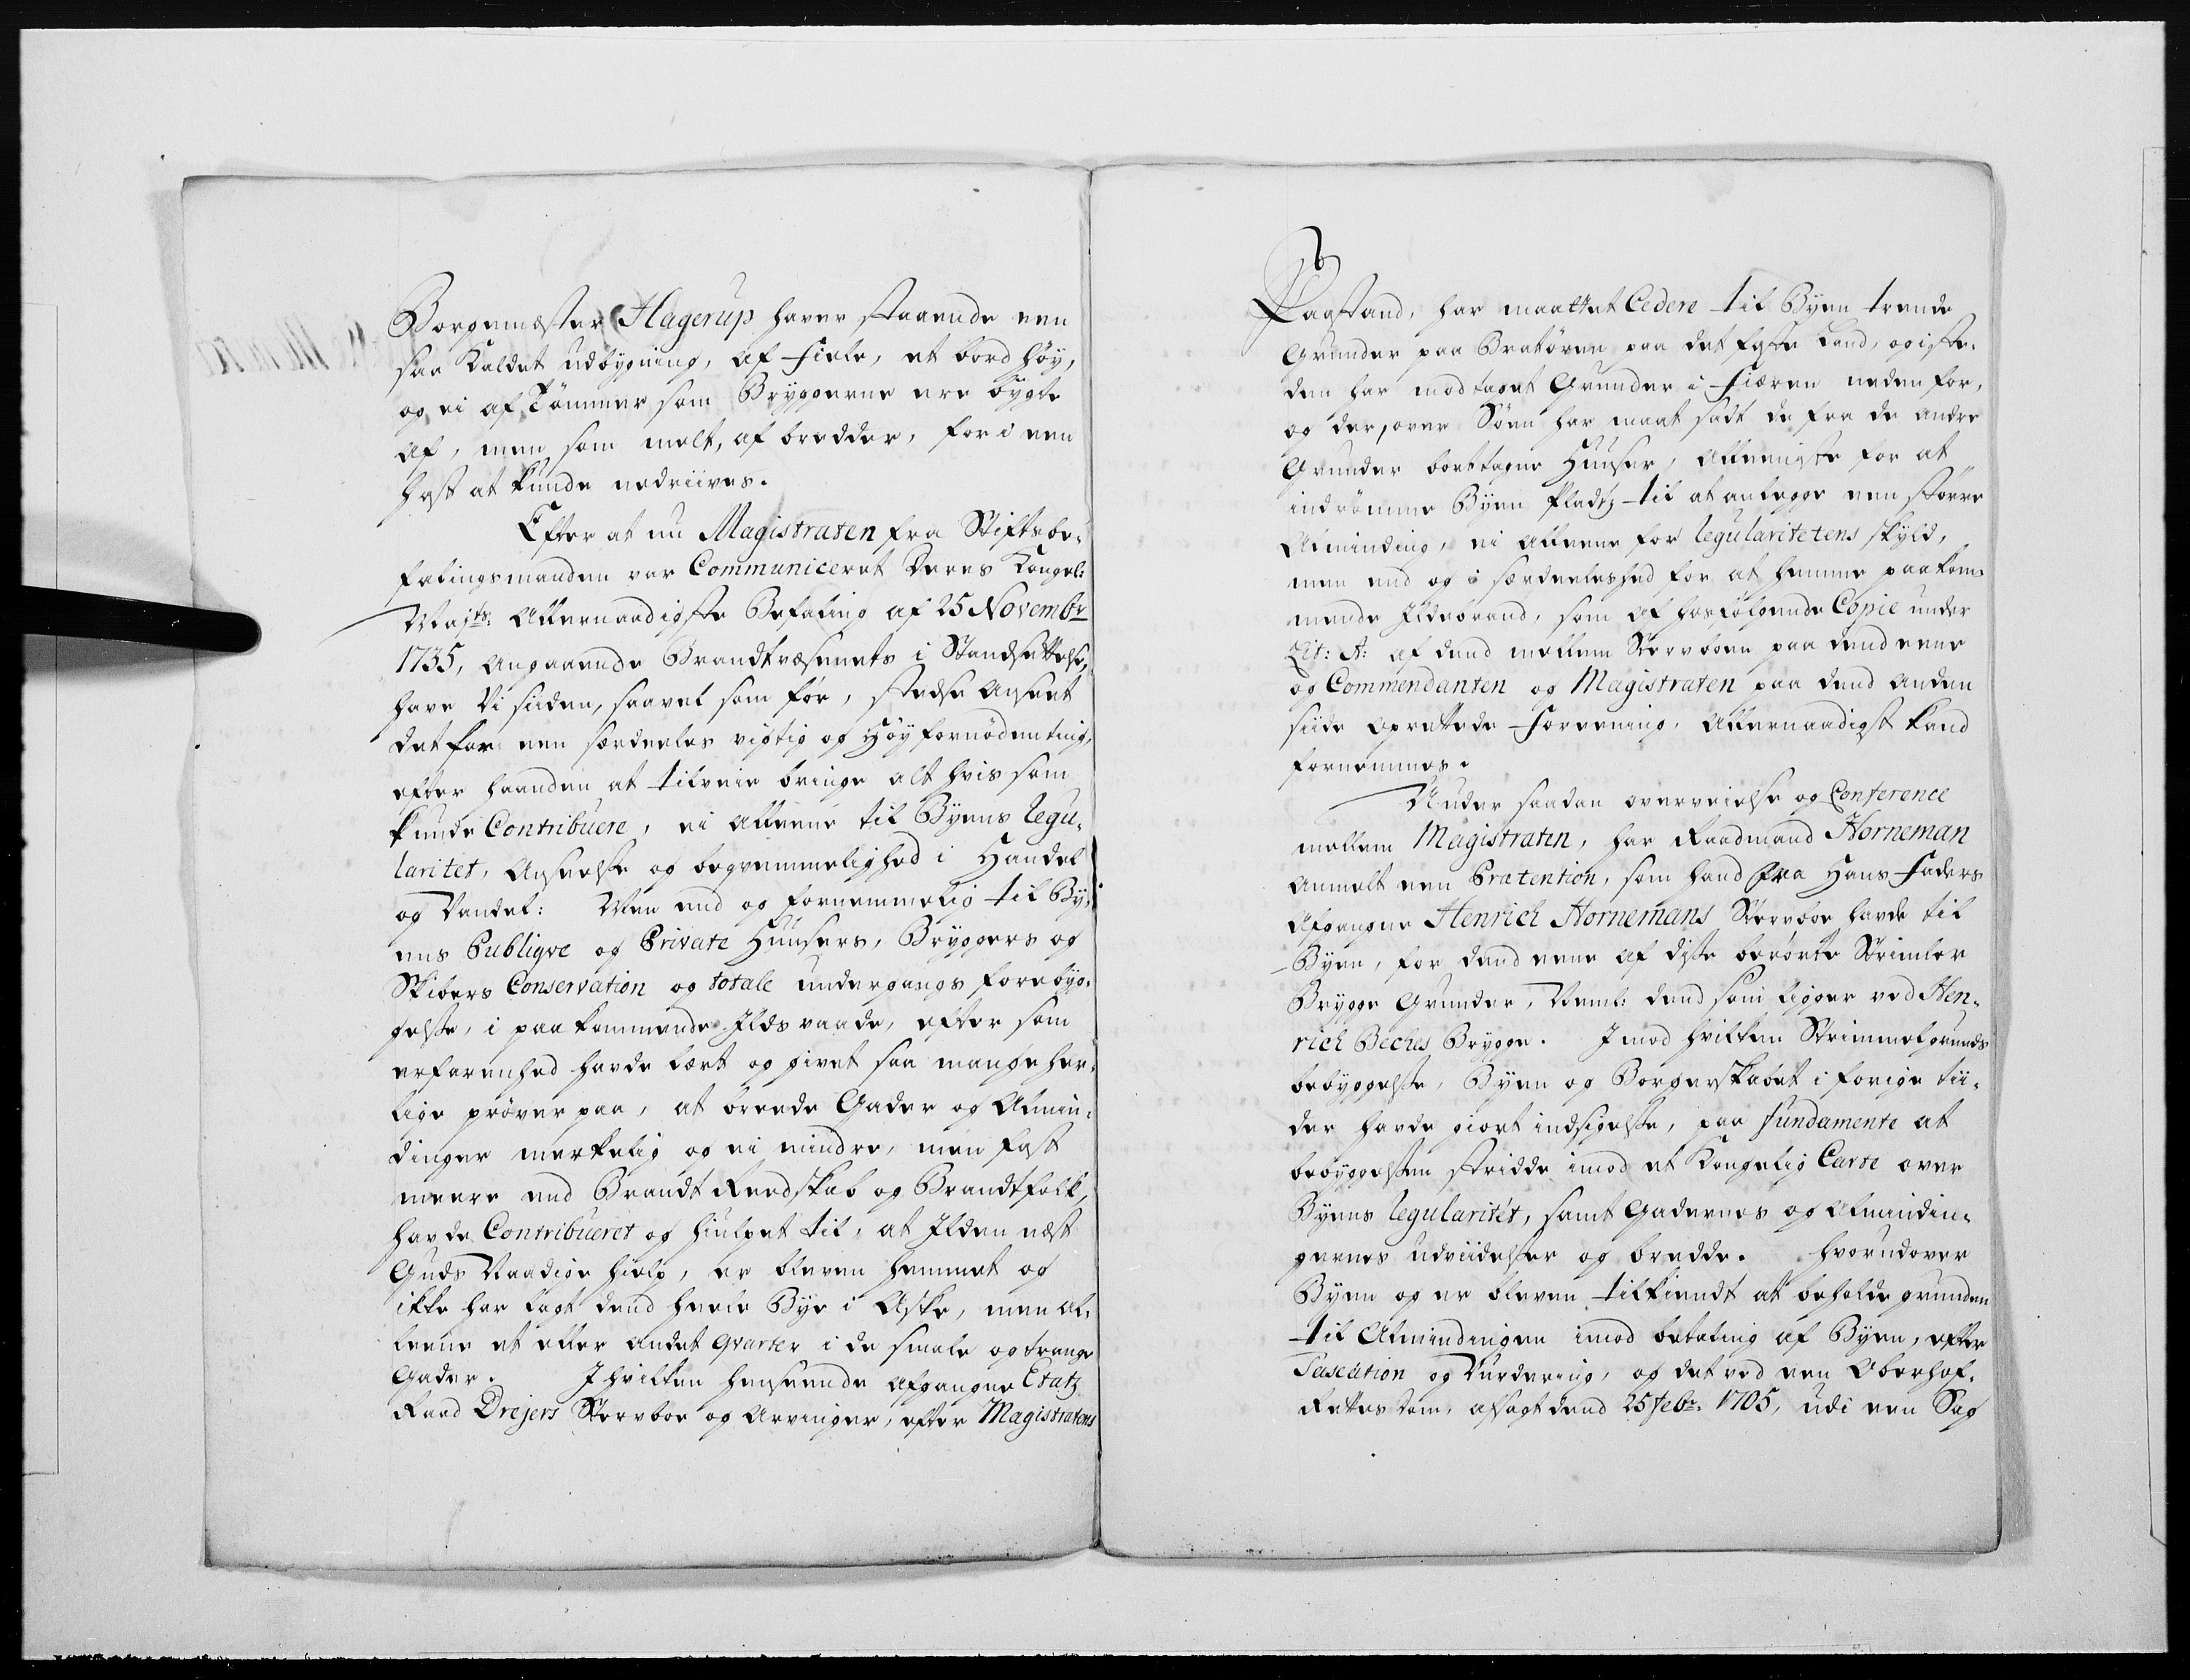 Borgemæster Hagerup haver staaende een
saa Kaldet udbygning, af Fiele, et bord høy,
og ei af Tømmer som Bryggerne ere bygte
af, men som melt, af bredder, for i een
hast at kunde nedriives.
Efter at nu Magistraten fra Stiftsbe¬
falingsmanden var Communiceret Deres Kongel:
Majts: Allernaadigste Befaling af 25 Novembr
1735, angaaende Brandtvæsenets i Standsettelse,
have Vi siiden, saavel som før, stedse anseet
det for een særdeeles vigtig og Høyfornøden ting,
efter haanden at tilveie bringe alt hvis som
kunde Contribuere, ei alleene til Byens Regu¬
laritet, Anseelse og beqvemmelighed i Handel
og Vandel: Men end og fornemmelig til By¬
ens Publiqve og Private Huusers, Bryggers og
Skibers Conservation og totale undergangs forebyg¬
gelse, i paakommende Ilds vaade, efter som
erfarenhed havde lært og givet saa mange her¬
lige prøver paa, at breede Gader og Almin¬
dinger merkelig og ei mindre, men fast
meere end Brandt Reedskab og Brandtfolk,
havde Contribueret og hiulpet til, at Ilden næst
Guds Naadige hielp, er bleven hemmet og
ikke har lagt dend heele Bye i Aske, men al¬
leene et eller andet qvarter i de smale og trange
Gader. I hvilken henseende afgangne Etatz
Raad Drejers Sterboe og Arvinger, efter Magistratens
Paastand, har maattet Cedere til Byen trende
Grunder paa Bratøren paa det faste Land, og iste¬
den har modtaget Grunder i Fiæren neden for,
og der, over Søen har maat sadt de fra de andre
Grunder borttagne Huuser, alleeniste for at
indrømme Byen Pladtz til at anlegge een større
Alminding, ei alleene for Regularitetens skyld,
men end og i særdeeleshed for at hemme paakom¬
mende Ildebrand, som af hosfølgende Copie under
Lit: A: af dend mellem Sterboen paa dend eene
og Commendanten og Magistraten paa dend anden
siide oprettede Foreening, Allernaadigst kand
fornemmes.
Under saadan overveielse og Conference
mellem Magistraten, har Raadmand Horneman
anmelt een Prætention, som hand fra Hans Faders
Afgangne Henrich Hornemans Sterboe havde til
Byen, for dend eene af diste berørte Strimler
Brygge Grunder, Neml: dend som ligger ved Hen¬
rich Beches Brygge. Imod hvilken Strimmelgrunds
bebyggelse, Byen og Borgerskabet i forige tii¬
der havde giort indsigelse, paa fundamente at
bebyggelsen stridde imod et Kongelig Carte over
Byens Regularitet, samt Gadernes og Almindin¬
gernes udviidelser og bredde. Hvorudover
Byen og er bleven tilkiendt at beholde grunden
til Almindingen imod betaling af Byen, efter
Taxation og Vurdering, og det ved een Oberhof¬
Rettes Dom, afsagt dend 25 Febr: 1705, udi een Sag